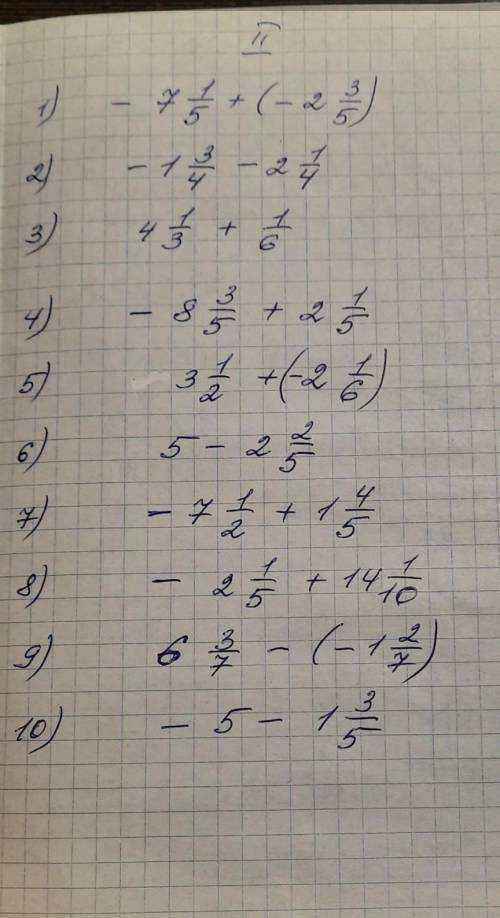 II
1) - 7 1/5 + (- 2 3/5)
2) - 1 3/4 - 2 1/4
3) 4 1/3 + 1/6
4) - 8 3/5 + 2 1/5
5) 3 1/2 + (-2 1/6)
6) 5 - 2 2/5
7) - 7 1/2 + 1 4/5
8) - 2 1/5 + 14 1/10
9) 6 3/7 - (- 1 2/7)
10) - 5 - 1 3/5